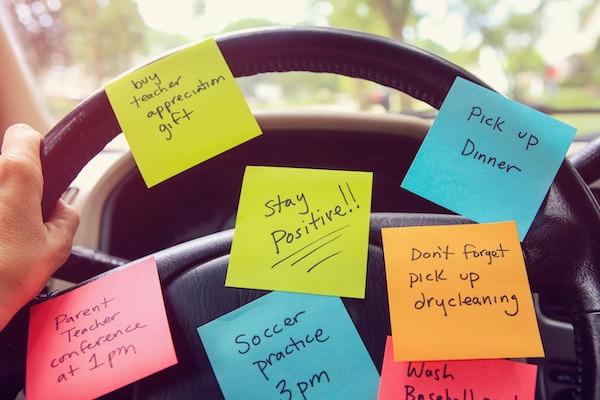 buy
teacher
appreciation
gift
Pick up
Dinner
Stay
Positive!!
Don't forget
pick up
drycleaning
Parent
Teacher
conference
at 1pm
Soccer
practice
3pm
Wash
Baseball